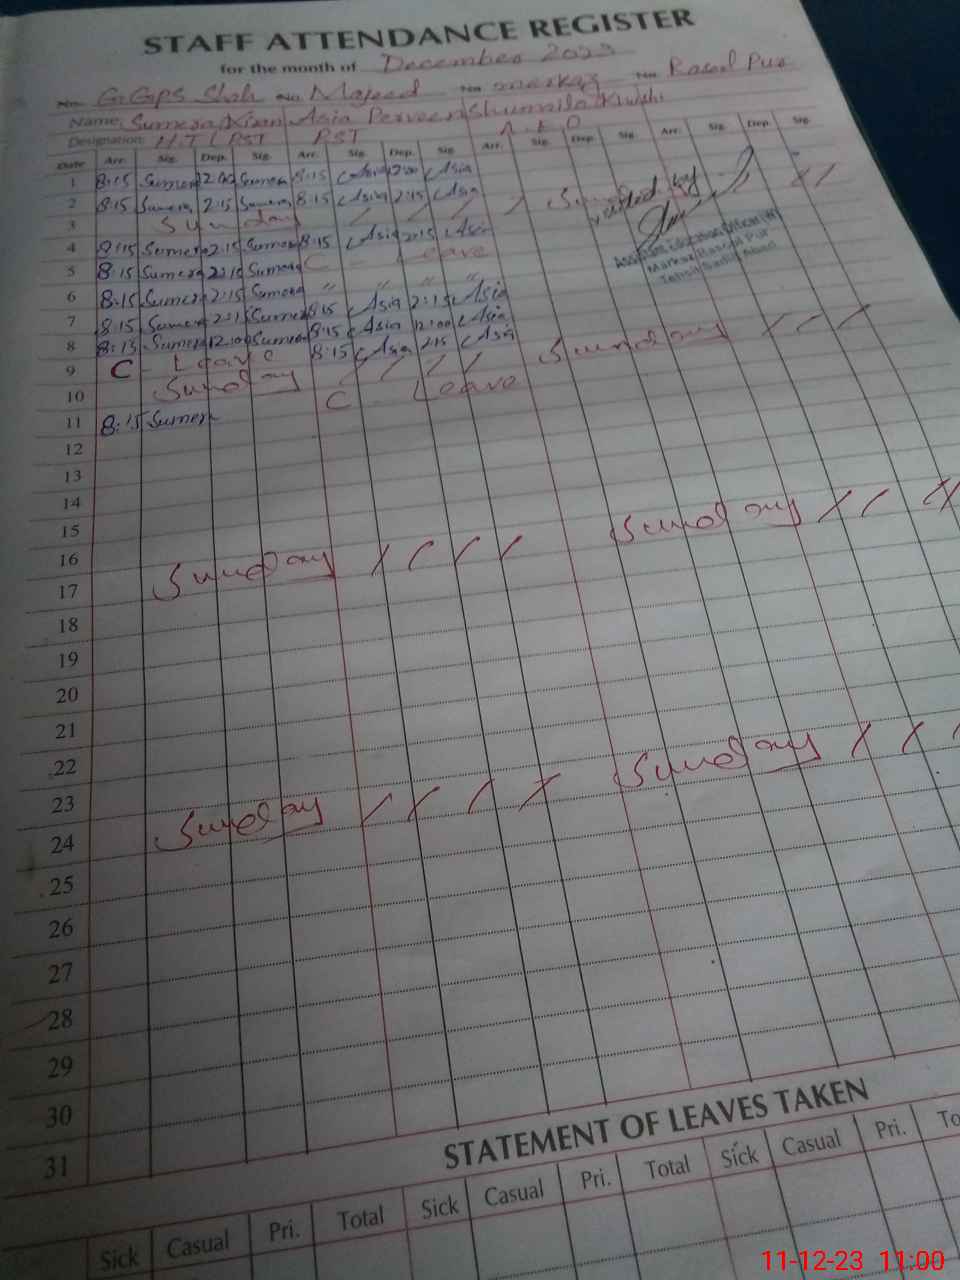 STAFF ATTENDANCE REGISTER
for the month of December 2023
GGPS Shah Majeed markaz Rasool Pur
Name: Sumera Kiran Asia Perveen Shumaila
Designation: H.T / PST PST A.E.O
Date Arr. Sig. Dep. Sig. Arr. Sig. Dep. Sig. Arr. Sig. Dep. Sig. Arr. Sig. Dep. Sig.
1 8:15 Sumera 12:00 Sumera 8:15 Asia 12:00 Asia
2 8:15 Sumera 2:15 Sumera 8:15 Asia 2:15 Asia
3 Sunday / / / /
verified by
4 8:15 Sumera 2:15 Sumera 8:15 Asia 2:15 Asia
Assistant Education Officer
Markaz Rasool Pur
5 8:15 Sumera 2:15 Sumera C - Leave
6 8:15 Sumera 2:15 Sumera " " " "
7 8:15 Sumera 2:15 Sumera 8:15 Asia 2:15 Asia
8 8:15 Sumera 12:00 Sumera 8:15 Asia 12:00 Asia
9 C - Leave 8:15 Asia 2:15 Asia
10 Sunday / / / / Sunday / / /
11 8:15 Sumera C - Leave
12
13
14
15
16
17 Sunday / / / / Sunday / / /
18
19
20
21
22
23
24 Sunday / / / / Sunday / / /
25
26
27
28
29
30
31
STATEMENT OF LEAVES TAKEN
Sick Casual Pri. Total Sick Casual Pri. Total Sick Casual Pri. To
11-12-23 11:00